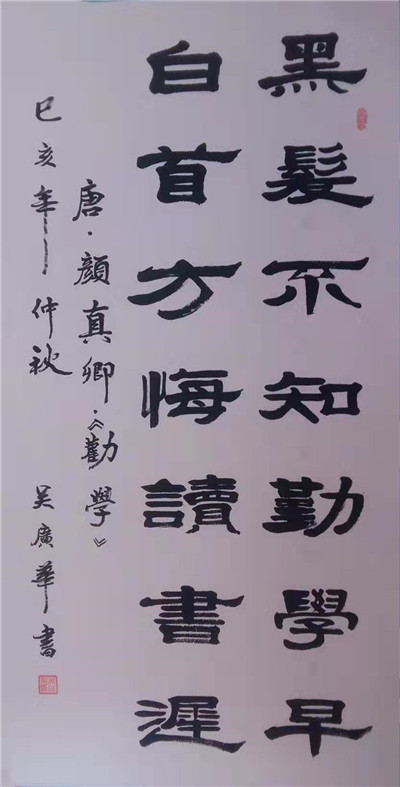 黑髮不知勤學早
白首方悔讀書遲
唐·顏真卿·《勸學》
己亥年仲秋
吴廣華書